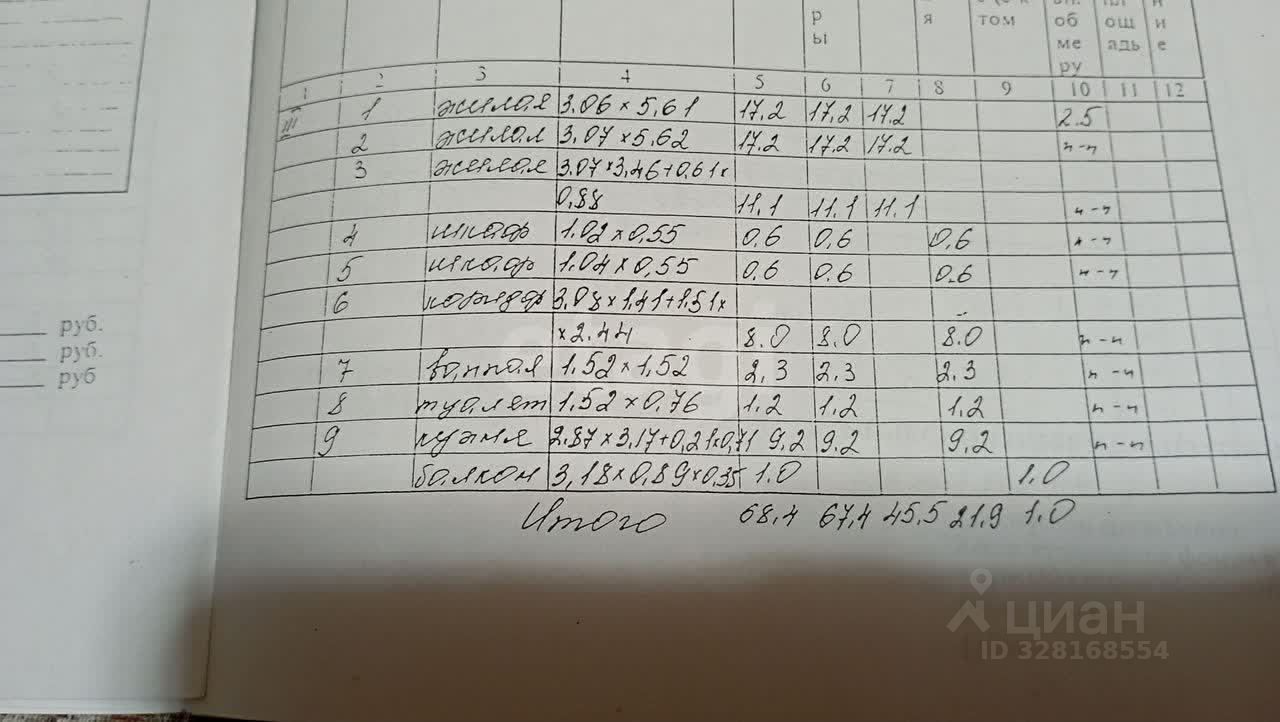 р я том об ош и
ы ме адь е
ру
1 2 3 4 5 6 7 8 9 10 11 12
III 1 жилая 3.06 × 5,61 17,2 17,2 17.2 2.5
2 жилая 3.07 × 5,62 17.2 17.2 17.2 "-"
3 жилая 3.07 × 3,46 + 0,61 ×
0,88 11,1 11.1 11.1 "-"
4 шкаф 1.02 × 0,55 0.6 0.6 0.6 "-"
5 шкаф 1.04 × 0,55 0.6 0.6 0.6 "-"
6 коридор 3.08 × 1,41 + 1,51 ×
× 2.44 8.0 8.0 8.0 "-"
7 ванная 1.52 × 1,52 2,3 2.3 2.3 "-"
8 туалет 1,52 × 0,76 1.2 1.2 1.2 "-"
9 кухня 2.87 × 3,17 + 0,21 × 0,71 9,2 9.2 9,2 "-"
балкон 3,18 × 0,89 × 0,35 1.0 1.0
Итого 68,4 67,4 45,5 21.9 1.0
руб.
руб.
руб
циан
ID 328168554